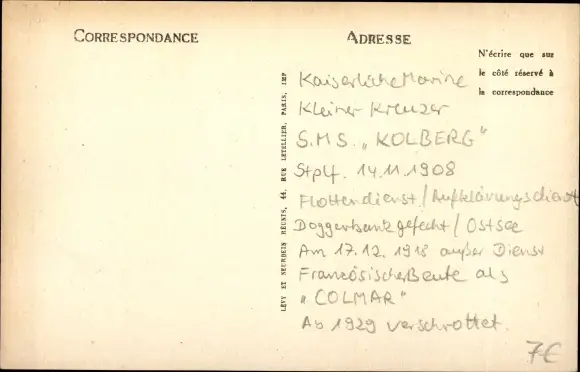 CORRESPONDANCE
ADRESSE
N'écrire que sur
le côté réservé à
la correspondance
LÉVY ET NEURDEIN RÉUNIS, 44, RUE LETELLIER, PARIS, IMP
Kaiserliche Marine
Kleiner Kreuzer
S.M.S. „KOLBERG"
Stplf. 14.11.1908
Flottendienst/Aufklärungsdienst
Doggerbankgefecht/Ostsee
Am 17.12.1918 außer Dienst
Französische Beute als
„COLMAR"
Ab 1929 verschrottet.
7€